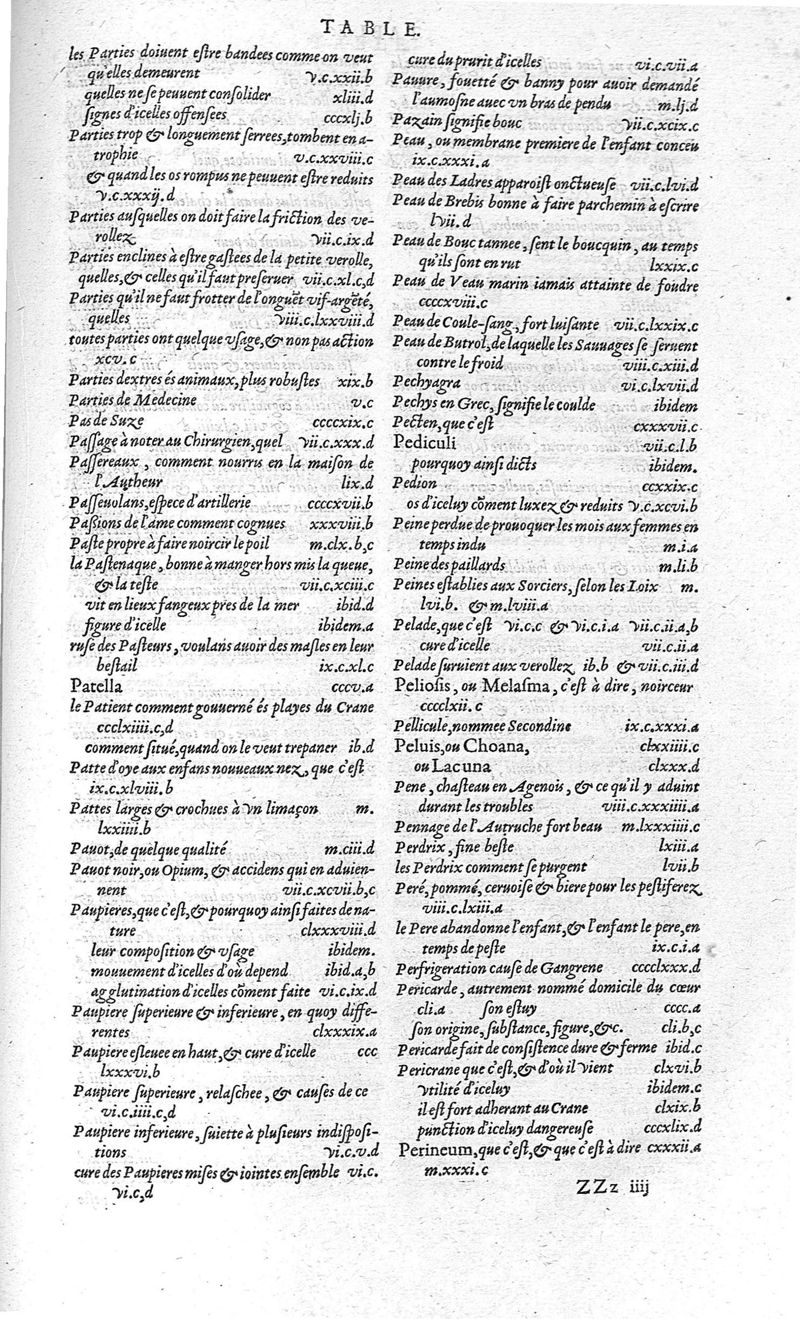 TABLE.
les Parties doiuent eſtre bandees comme on veut
qu'elles demeurent v.c.xxii.b
quelles ne ſe peuuent conſolider xliii.d
ſignes d'icelles offenſees cccxlj.b
Parties trop & longuement ſerrees, tombent en a-
trophie v.c.xxviii.c
& quand les os rompus ne peuuent eſtre reduits
v.c.xxxij.d
Parties auſquelles on doit faire la friction des ve-
rollez vii.c.ix.d
Parties enclines à eſtre gaſtees de la petite verolle,
quelles, & celles qu'il faut preſeruer vii.c.xl.c,d
Parties qu'il ne faut frotter de l'onguēt vif-argēté,
quelles viii.c.lxxviii.d
toutes parties ont quelque vſage, & non pas action
xcv.c
Parties dextres és animaux, plus robuſtes xix.b
Parties de Medecine v.c
Pas de Suze ccccxix.c
Paſſage à noter au Chirurgien, quel vii.c.xxx.d
Paſſereaux, comment nourris en la maiſon de
l'Autheur lix.d
Paſſeuolans, eſpece d'artillerie ccccxvii.b
Paſsions de l'ame comment cognues xxxviii.b
Paſte propre à faire noircir le poil m.clx.b,c
la Paſtenaque, bonne à manger hors mis la queue,
& la teſte vii.c.xciii.c
vit en lieux fangeux pres de la mer ibid.d
figure d'icelle ibidem.a
ruſe des Paſteurs, voulans auoir des maſles en leur
beſtail ix.c.xl.c
Patella cccv.a
le Patient comment gouuerné és playes du Crane
ccclxiiii.c,d
comment ſitué, quand on le veut trepaner ib.d
Patte d'oye aux enfans nouueaux nez, que c'eſt
ix.c.xlviii.b
Pattes larges & crochues à vn limaçon m.
lxxiiii.b
Pauot, de quelque qualité m.ciii.d
Pauot noir, ou Opium, & accidens qui en aduien-
nent vii.c.xcvii.b,c
Paupieres, que c'eſt, & pourquoy ainſi faites de na-
ture clxxxviii.d
leur compoſition & vſage ibidem.
mouuement d'icelles d'où depend ibid.a,b
agglutination d'icelles cōment faite vi.c.ix.d
Paupiere ſuperieure & inferieure, en quoy diffe-
rentes clxxxix.a
Paupiere eſleuee en haut, & cure d'icelle ccc
lxxxvi.b
Paupiere ſuperieure, relaſchee, & cauſes de ce
vi.c.iiii.c,d
Paupiere inferieure, ſuiette à pluſieurs indiſpoſi-
tions vi.c.v.d
cure des Paupieres miſes & iointes enſemble vi.c.
vi.c,d
cure du prurit d'icelles vi.c.vii.a
Pauure, fouetté & banny pour auoir demandé
l'aumoſne auec vn bras de pendu m.lj.d
Pazain ſignifie bouc vii.c.xcix.c
Peau, ou membrane premiere de l'enfant conceu
ix.c.xxxi.a
Peau des Ladres apparoiſt onctueuſe vii.c.lvi.d
Peau de Brebis bonne à faire parchemin à eſcrire
lvii.d
Peau de Bouc tannee, ſent le boucquin, au temps
qu'ils ſont en rut lxxix.c
Peau de Veau marin iamais attainte de foudre
ccccxviii.c
Peau de Coule-ſang, fort luiſante vii.c.lxxix.c
Peau de Butrol, de laquelle les Sauuages ſe ſeruent
contre le froid viii.c.xiii.d
Pechyagra vi.c.lxvii.d
Pechys en Grec, ſignifie le coulde ibidem
Pecten, que c'eſt cxxxvii.c
Pediculi vii.c.l.b
pourquoy ainſi dicts ibidem.
Pedion ccxxix.c
os d'iceluy cōment luxez & reduits v.c.xcvi.b
Peine perdue de prouoquer les mois aux femmes en
temps indu m.i.a
Peine des paillards m.li.b
Peines eſtablies aux Sorciers, ſelon les Loix m.
lvi.b. & m.lviii.a
Pelade, que c'eſt vi.c.c & vi.c.i.a vii.c.ii.a,b
cure d'icelle vii.c.ii.a
Pelade ſuruient aux verollez ib.b & vii.c.iii.d
Pelioſis, ou Melaſma, c'eſt à dire, noirceur
cccclxii.c
Pellicule, nommee Secondine ix.c.xxxi.a
Peluis, ou Choana, clxxiiii.c
ou Lacuna clxxx.d
Pene, chaſteau en Agenois, & ce qu'il y aduint
durant les troubles viii.c.xxxiiii.a
Pennage de l'Autruche fort beau m.lxxxiiii.c
Perdrix, fine beſte lxiii.a
les Perdrix comment ſe purgent lvii.b
Peré, pommé, ceruoiſe & biere pour les peſtiferez
viii.c.lxiii.a
le Pere abandonne l'enfant, & l'enfant le pere, en
temps de peſte ix.c.i.a
Perfrigeration cauſe de Gangrene cccclxxx.d
Pericarde, autrement nommé domicile du cœur
cli.a ſon eſtuy cccc.a
ſon origine, ſubſtance, figure, &c. cli.b,c
Pericarde fait de conſiſtence dure & ferme ibid.c
Pericrane que c'eſt, & d'où il vient clxvi.b
vtilité d'iceluy ibidem.c
il eſt fort adherant au Crane clxix.b
punction d'iceluy dangereuſe cccxlix.d
Perineum, que c'eſt, & que c'eſt à dire cxxxii.a
m.xxxi.c
ZZz iiij